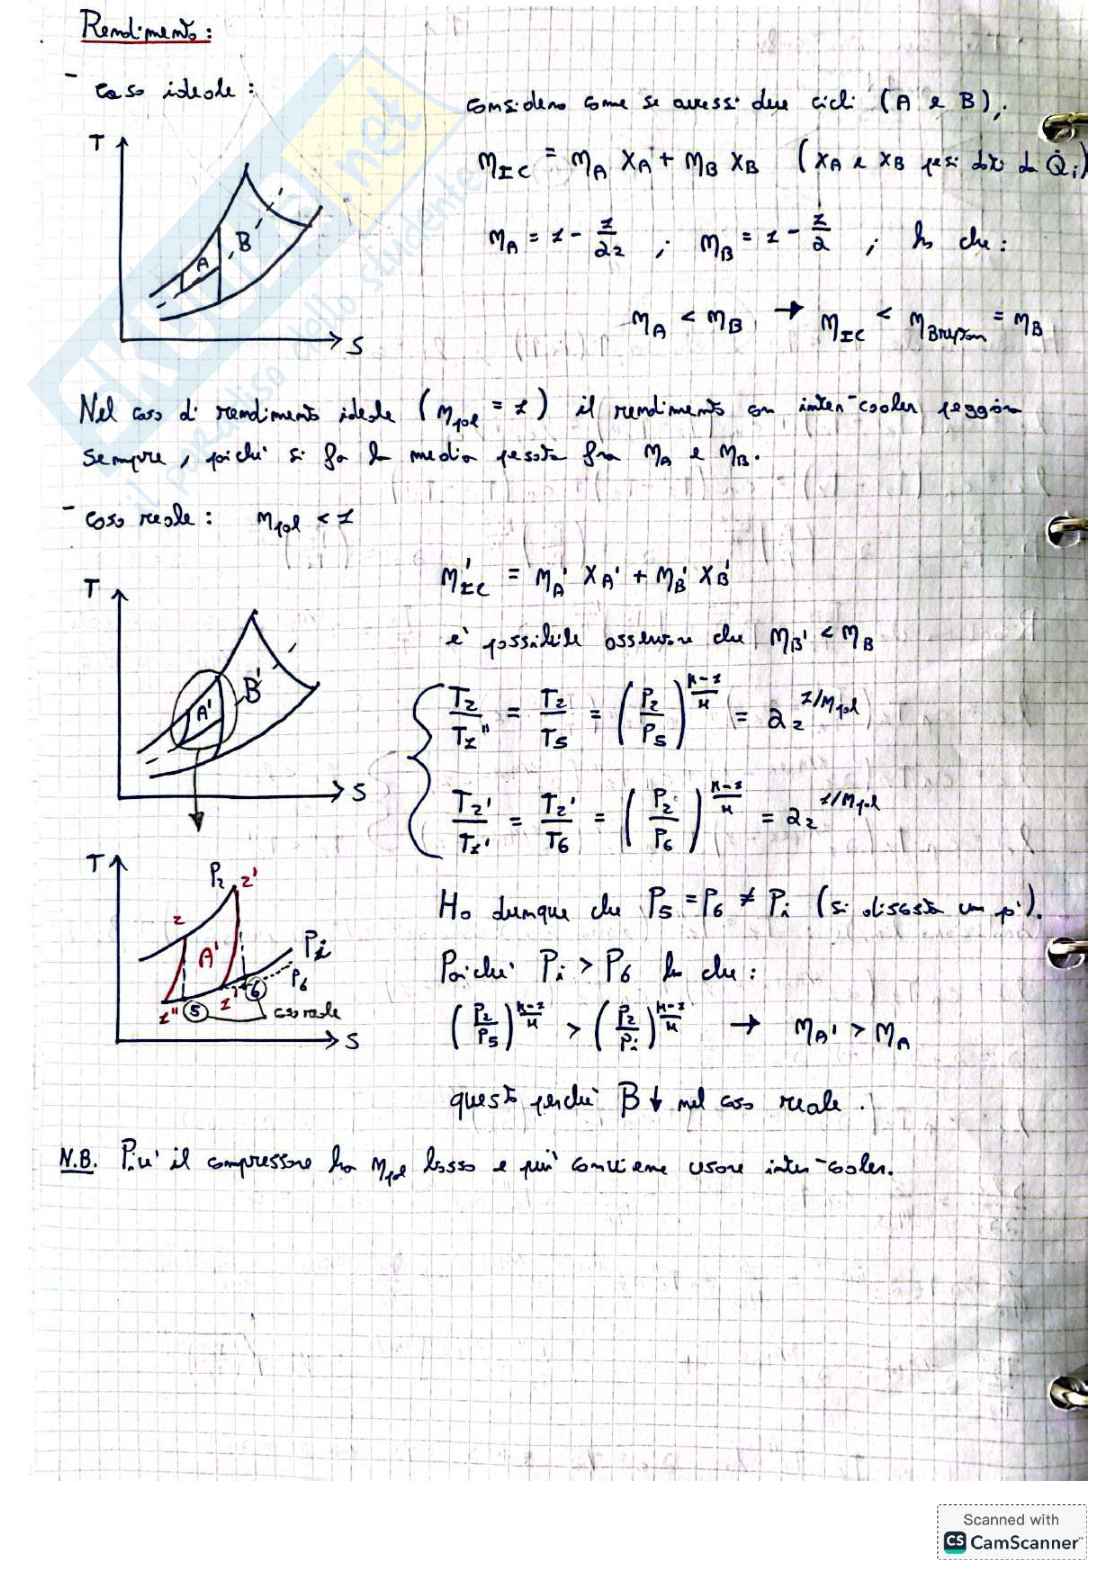 Rendimento:
- caso ideale:
considero come se avessi due cicli (A e B),
T
η_IC = η_A X_A + η_B X_B (X_A e X_B pesi dati da Q̇_i)
B
A
η_A = 1 - 1/a_2 ; η_B = 1 - 1/a ; ho che:
η_A < η_B → η_IC < η_Brayton = η_B
S
Nel caso di rendimento ideale (η_pol = 1) il rendimento con inter-cooler peggiora
sempre, poiché si fa la media pesata fra η_A e η_B.
- caso reale: η_pol < 1
η'_IC = η_A' X_A' + η_B' X_B'
T
è possibile osservare che η_B' < η_B
B'
A'
T_2/T_1'' = T_2/T_5 = (P_2/P_5)^((K-1)/K) = a_2^(1/η_pol)
S
T_2'/T_1' = T_2'/T_6 = (P_2/P_6)^((K-1)/K) = a_2^(1/η_pol)
T
P_2 2'
2
A'
P_i
P_6
1'' 5 1' 6 caso reale
S
Ho dunque che P_5 = P_6 ≠ P_i (si discosta un po').
Poiché P_i > P_6 ho che:
(P_2/P_5)^((K-1)/K) > (P_2/P_i)^((K-1)/K) → η_A' > η_A
questo perché B ↓ nel caso reale.
N.B. Piu' il compressore ha η_pol basso e piu' conviene usare inter-cooler.
skuola.net
il paradiso dello studente
Scanned with
CS CamScanner